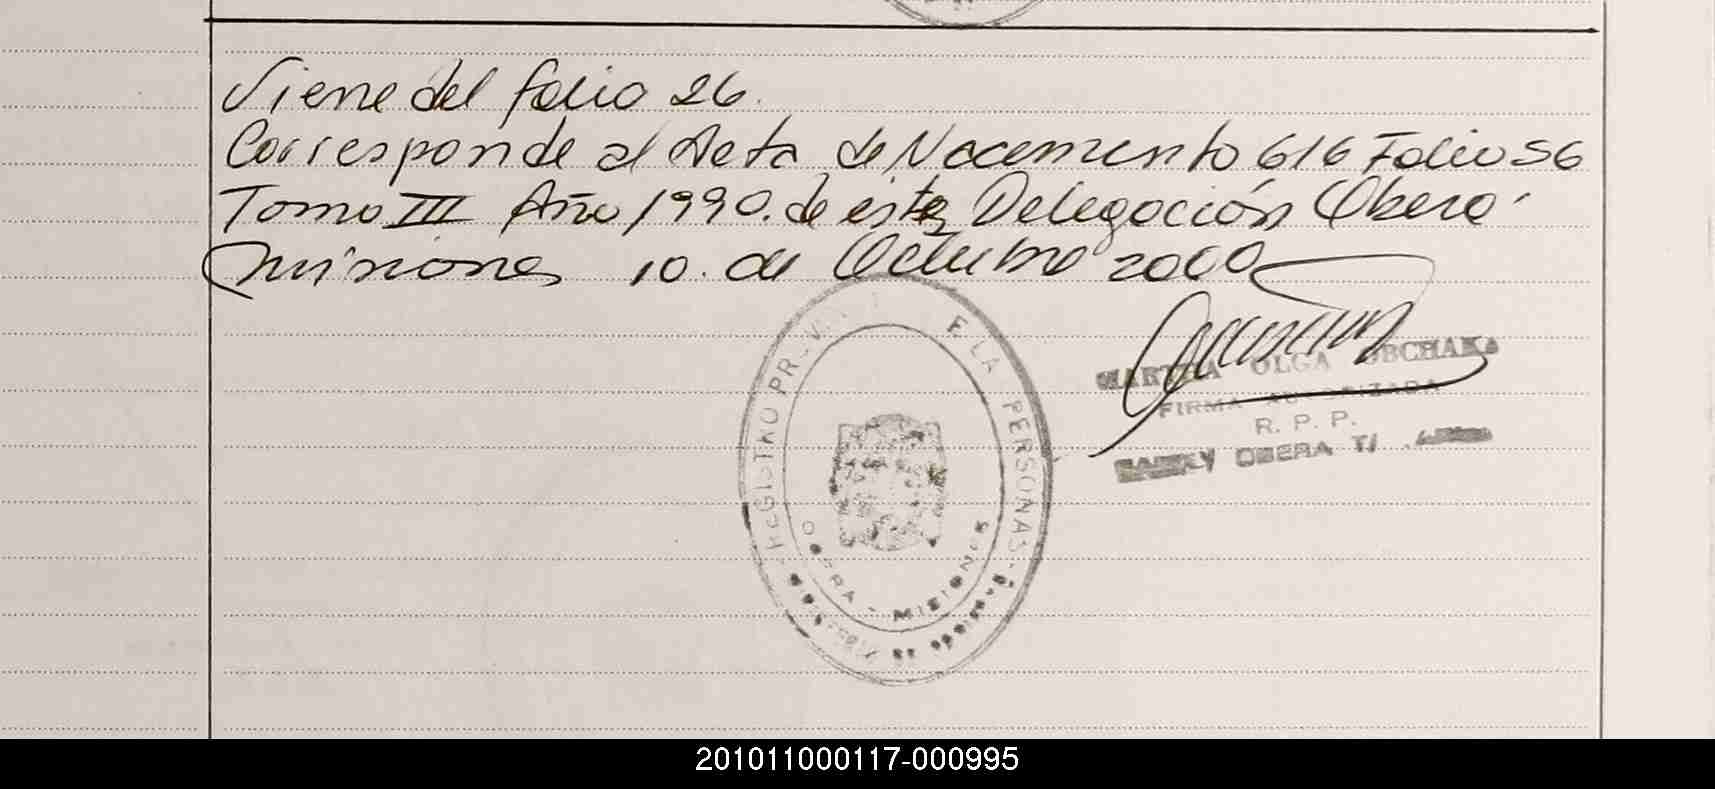 Viene del folio 26.
Corresponde al Acta de Nacemento 616 Folio 56
Tomo III Año 1990. de esta Delegación Oberá
Misiones 10. de Octubre 2000
REGISTRO PROV. DE LA PERSONAS
OBERA - MISIONES
MARTHA OLGA OBCHAK
FIRMA AUTORIZADA
R. P. P.
OBERA
201011000117-000995